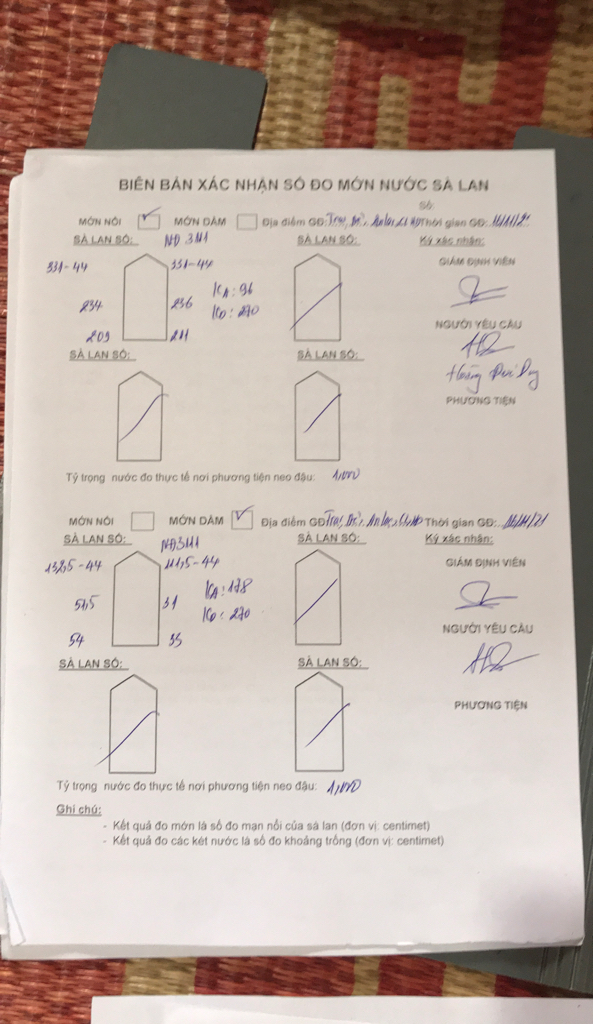 BIÊN BẢN XÁC NHẬN SỐ ĐO MỚN NƯỚC SÀ LAN
Số:
MỚN NỔI MỚN DẦM Địa điểm GĐ: Thời gian GĐ:
SÀ LAN SỐ: NĐ 3111 SÀ LAN SỐ: Ký xác nhận:
331-44 331-44 GIÁM ĐỊNH VIÊN
234 236 KA: 96
KD: 270
209 211 NGƯỜI YÊU CẦU
SÀ LAN SỐ: SÀ LAN SỐ:
PHƯƠNG TIỆN
Tỷ trọng nước đo thực tế nơi phương tiện neo đậu: 1,000
MỚN NỔI MỚN DẦM Địa điểm GĐ Thời gian GĐ:
SÀ LAN SỐ: NĐ3111 SÀ LAN SỐ: Ký xác nhận:
GIÁM ĐỊNH VIÊN
KA: 178
31 KD: 270
54 NGƯỜI YÊU CẦU
SÀ LAN SỐ: SÀ LAN SỐ:
PHƯƠNG TIỆN
Tỷ trọng nước đo thực tế nơi phương tiện neo đậu: 1,000
Ghi chú:
- Kết quả đo mớn là số đo mạn nổi của sà lan (đơn vị: centimet)
- Kết quả đo các két nước là số đo khoảng trống (đơn vị: centimet)